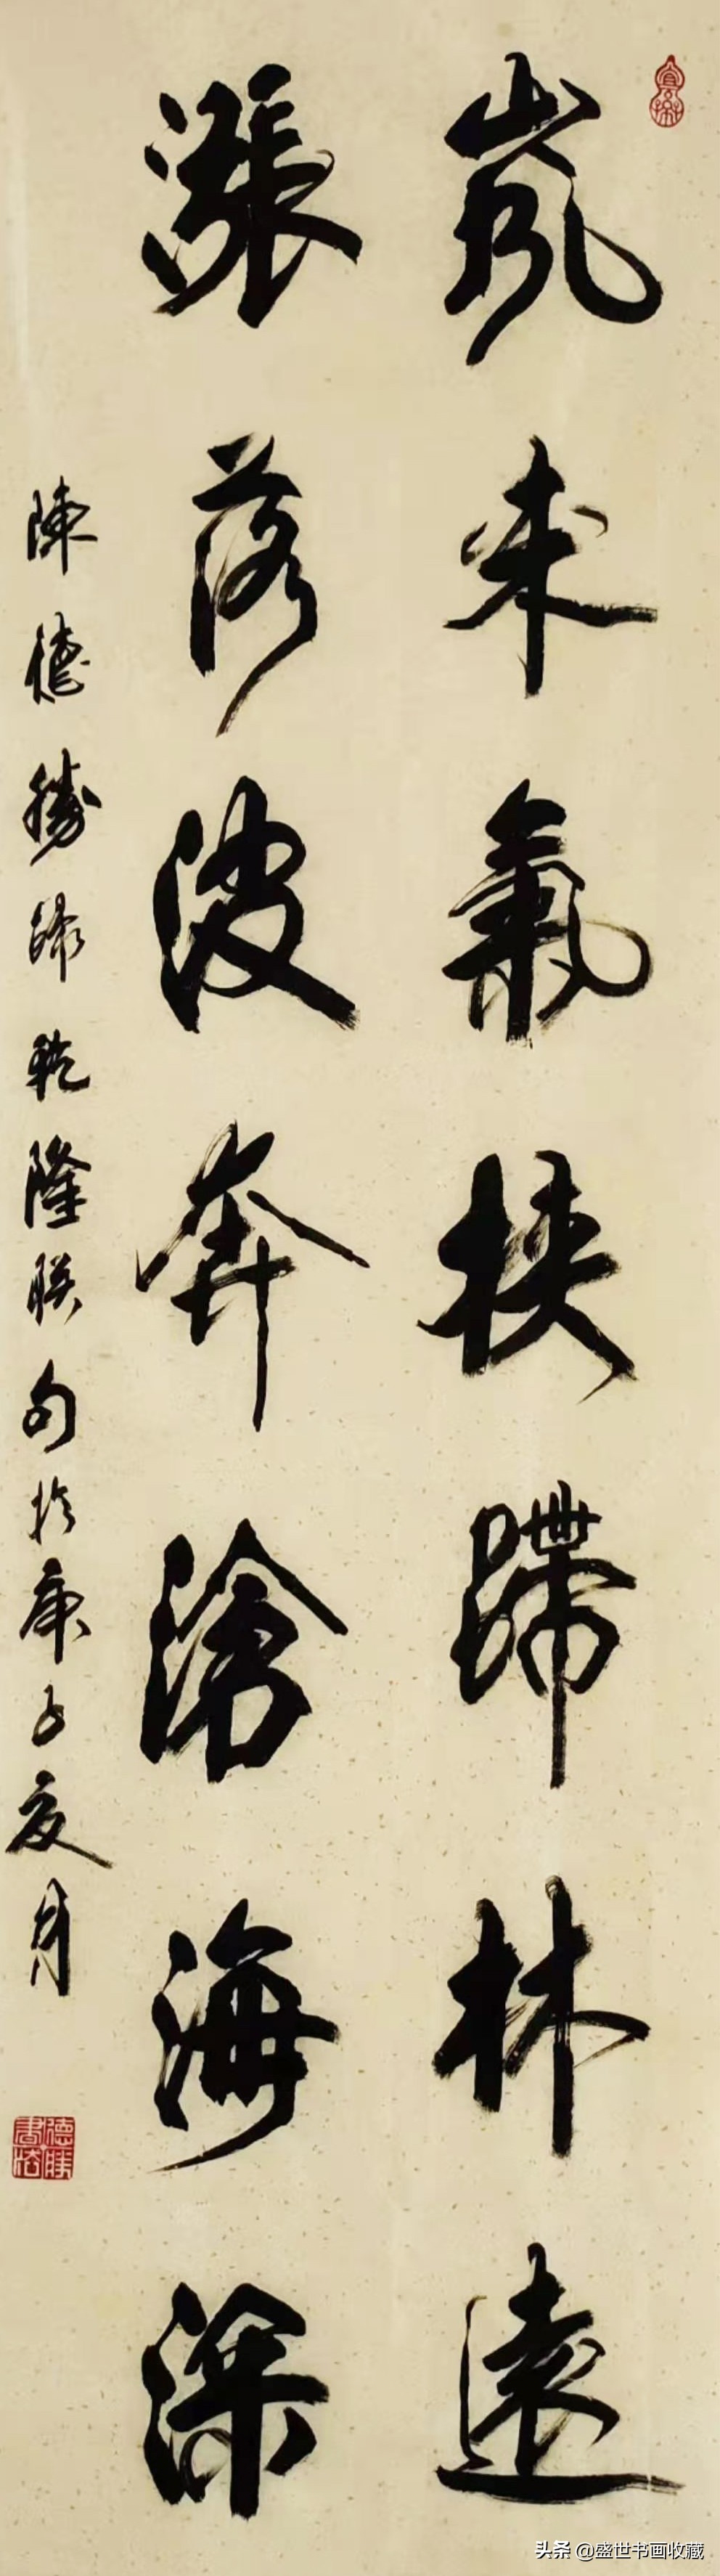 嵐来氣挾蹛林遠
漲落波奔滄海深
陳德勝歸乾隆联句於庚子夏月
德勝書法
头条 @盛世书画收藏